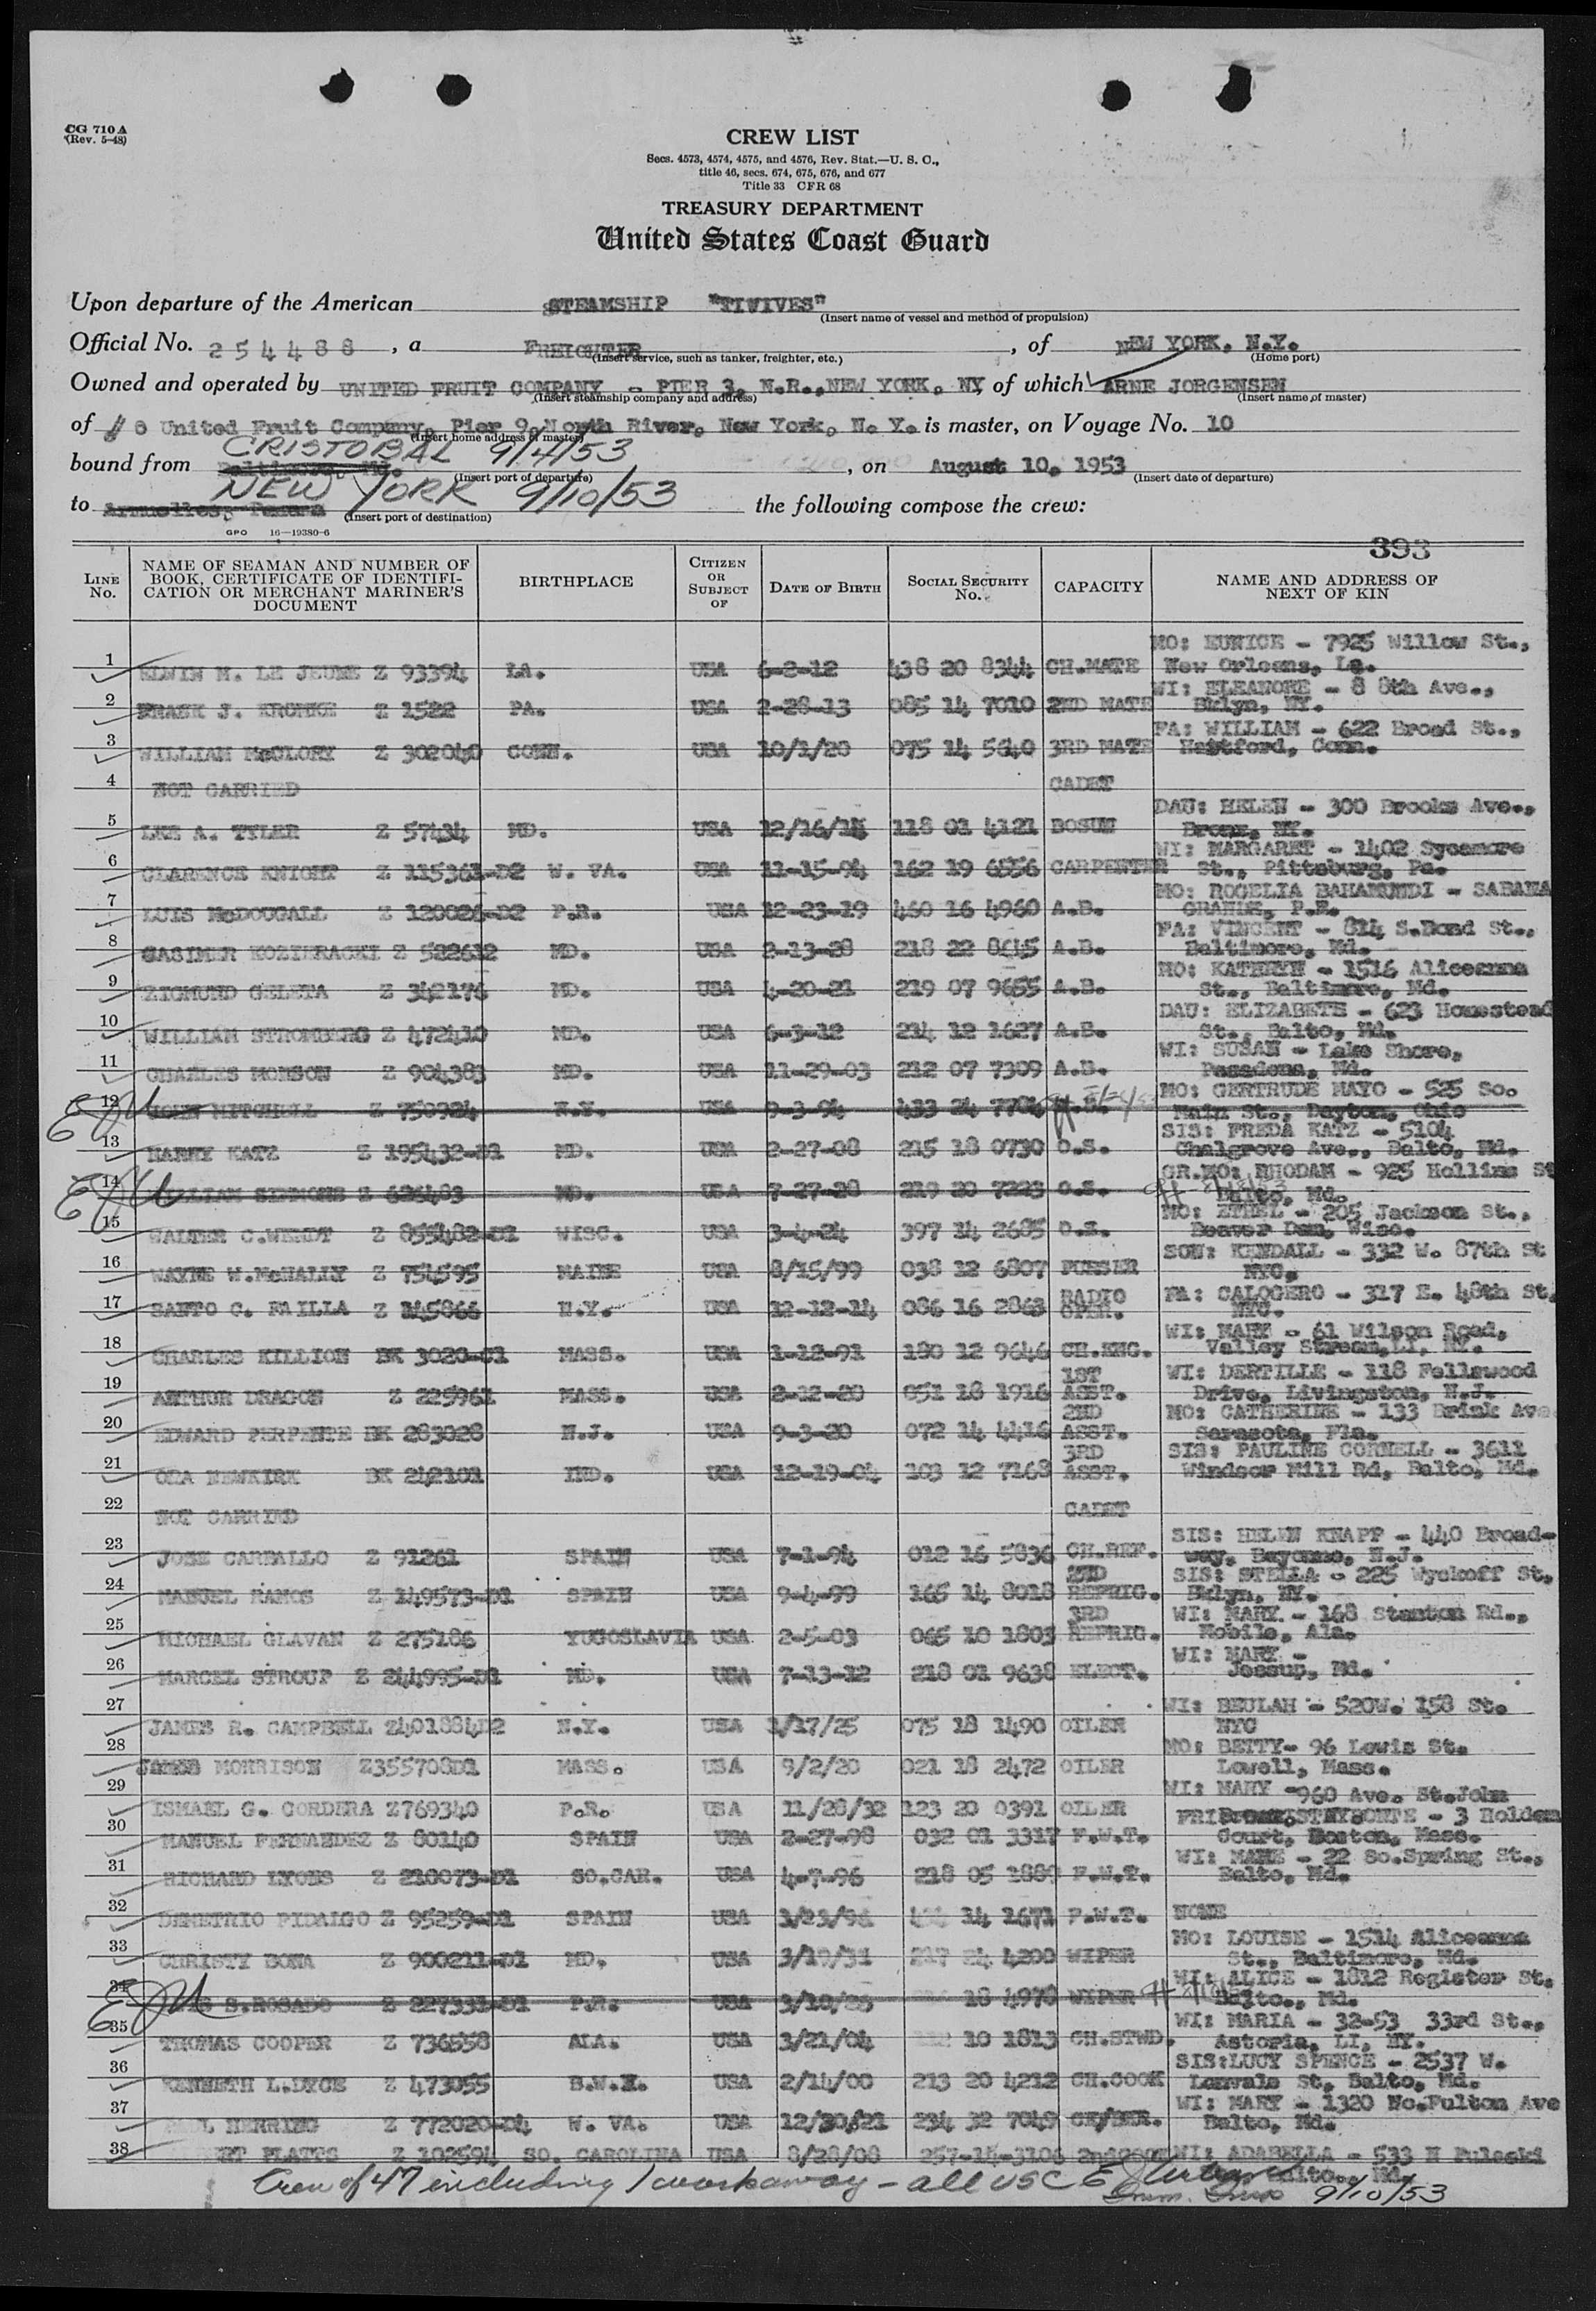 CG 710 A
(Rev. 5-48)
CREW LIST
Secs. 4573, 4574, 4575, and 4576, Rev. Stat.—U. S. C.,
title 46, secs. 674, 675, 676, and 677
Title 33 CFR 68
TREASURY DEPARTMENT
United States Coast Guard
Upon departure of the American STEAMSHIP "TIVIVES"
(Insert name of vessel and method of propulsion)
Official No. 254488, a FREIGHTER, of NEW YORK, N.Y.
(Insert service, such as tanker, freighter, etc.) (Home port)
Owned and operated by UNITED FRUIT COMPANY - PIER 3, N.R., NEW YORK, NY of which ARNE JORGENSEN
(Insert steamship company and address) (Insert name of master)
of United Fruit Company, Pier 9 North River, New York, N. Y. is master, on Voyage No. 10
(Insert home address of master)
CRISTOBAL 9/4/53
bound from Baltimore, Md., on August 10, 1953
(Insert port of departure) (Insert date of departure)
NEW YORK 9/10/53
to Armuelles, Panama the following compose the crew:
(Insert port of destination)
GPO 16—19380-6
393
LINE No. NAME OF SEAMAN AND NUMBER OF BOOK, CERTIFICATE OF IDENTIFICATION OR MERCHANT MARINER'S DOCUMENT BIRTHPLACE CITIZEN OR SUBJECT OF DATE OF BIRTH SOCIAL SECURITY No. CAPACITY NAME AND ADDRESS OF NEXT OF KIN
1 ELWIN M. LE JEUNE Z 93394 LA. USA 6-2-12 438 20 8344 CH.MATE MO: EUNICE - 7925 Willow St., New Orleans, La.
2 FRANK J. KROMKE Z 1522 PA. USA 2-28-13 085 14 7010 2ND MATE WI: ELEANORE - 8 8th Ave., Bklyn, NY.
3 WILLIAM McCLORY Z 302040 CONN. USA 10/1/20 075 14 5640 3RD MATE FA: WILLIAM - 622 Broad St., Hartford, Conn.
4 NOT CARRIED CADET
5 LEE A. TYLER Z 57434 MD. USA 12/16/15 118 01 4121 BOSUN DAU: HELEN - 300 Brooks Ave., Bronx, NY.
6 CLARENCE KNIGHT Z 115361-D2 W. VA. USA 11-15-94 162 19 6556 CARPENTER WI: MARGARET - 1402 Sycamore St., Pittsburg, Pa.
7 LUIS McDOUGALL Z 120026-D2 P.R. USA 12-23-19 460 16 4960 A.B. MO: ROGELIA BAHAMUNDI - SABANA GRANDE, P.R.
8 CASIMER KOZIERACKI Z 522612 MD. USA 2-13-28 218 22 8645 A.B. FA: VINCENT - 814 S.Bond St., Baltimore, Md.
9 ZIGMUND GELETA Z 342176 MD. USA 4-20-21 219 07 9655 A.B. MO: KATHRYN - 1516 Aliceanna St., Baltimore, Md.
10 WILLIAM STROMBERG Z 472410 MD. USA 6-3-12 214 12 1627 A.B. DAU: ELIZABETH - 623 Homestead St., Balto, Md.
11 CHARLES MONSON Z 904383 MD. USA 11-29-03 212 07 7309 A.B. WI: SUSAN - Lake Shore, Pasadena, Md.
12 JOHN MITCHELL Z 750924 N.Y. USA 9-3-94 433 24 7704 MO: GERTRUDE MAYO - 525 So. Main St., Dayton, Ohio
13 HARRY KATZ Z 195432-D1 MD. USA 2-27-08 215 18 0730 O.S. SIS: FREDA KATZ - 5104 Chalgrove Ave., Balto, Md.
14 WILLIAM SIMMONS Z 686483 MD. USA 7-27-28 219 20 7223 O.S. GR.MO: RHODAH - 925 Hollins St Balto, Md.
15 WALTER C.WENDT Z 855482-D1 WISC. USA 3-4-24 397 14 2685 O.S. MO: ETHEL - 205 Jackson St., Beaver Dam, Wisc.
16 WAYNE W.McNALLY Z 754595 MAINE USA 8/15/99 038 12 6807 PURSER SON: KENDALL - 332 W. 87th St NYC.
17 SANTO C. FAILLA Z 345866 N.Y. USA 12-12-14 086 16 2863 RADIO OPER. FA: CALOGERO - 317 E. 48th St, NYC.
18 CHARLES KILLION BK 3020-D1 MASS. USA 1-12-91 180 12 9646 CH.ENG. WI: MARY - 61 Wilson Road, Valley Stream,LI, NY.
19 ARTHUR DRAGON Z 225961 MASS. USA 2-12-20 051 18 1916 1ST ASST. WI: DERTILLE - 118 Fellswood Drive, Livingston, N.J.
20 EDWARD PERPENTE BK 283028 N.J. USA 9-3-20 072 14 4416 2ND ASST. MO: CATHERINE - 133 Brink Ave Sarasota, Fla.
21 ORA NEWKIRK BK 242101 IND. USA 12-19-04 103 12 7168 3RD ASST. SIS: PAULINE CORNELL - 3611 Windsor Mill Rd, Balto, Md.
22 NOT CARRIED CADET
23 JOSE CARBALLO Z 91261 SPAIN USA 7-1-94 012 16 5836 CH.REF. SIS: HELEN KNAPP - 440 Broadway, Bayonne, N.J.
24 MANUEL RAMOS Z 149573-D1 SPAIN USA 9-4-99 165 14 8018 2ND REFRIG. SIS: STELLA - 225 Wyckoff St, Bklyn, NY.
25 MICHAEL GLAVAN Z 275186 YUGOSLAVIA USA 2-5-03 065 10 1803 3RD REFRIG. WI: MARY - 168 Stanton Rd., Mobile, Ala.
26 MARCEL STROUP Z 244995-D1 MD. USA 7-13-12 218 01 9638 ELECT. WI: MARY - Jessup, Md.
27 JAMES R. CAMPBELL Z401884D2 N.Y. USA 1/17/25 075 18 1490 OILER WI: BEULAH - 520W. 158 St. NYC
28 JAMES MORRISON Z355708D1 MASS. USA 9/2/20 021 18 2472 OILER MO: BETTY- 96 Lewis St. Lowell, Mass.
29 ISMAEL G. CORDERA Z769340 P.R. USA 11/28/32 123 20 0391 OILER WI: MARY -960 Ave. St.John
30 MANUEL FERNANDEZ Z 80140 SPAIN USA 2-27-98 032 01 3317 F.W.T. - 3 Holden Court, Boston, Mass.
31 RICHARD LYONS Z 210073-D1 SO.CAR. USA 4-7-96 218 05 1880 F.W.T. WI: MAME - 22 So.Spring St., Balto, Md.
32 DEMETRIO FIDALGO Z 95259-D1 SPAIN USA 3/23/96 14 1671 F.W.T. NONE
33 CHRISTY BONA Z 900211-D1 MD. USA 3/19/31 217 24 4200 WIPER MO: LOUISE - 1514 Aliceanna St., Baltimore, Md.
34 S.ROSADO Z 227331-D1 P.R. USA 18 4978 WIPER WI: ALICE - 1812 Register St. Balto., Md.
35 THOMAS COOPER Z 736558 ALA. USA 3/21/04 10 1813 CH.STWD. WI: MARIA - 32-53 33rd St., Astoria, LI, NY.
36 KENNETH L.DYCE Z 473055 B.W.I. USA 2/14/00 213 20 4212 CH.COOK SIS:LUCY SPENCE - 2537 W. Lanvale St, Balto, Md.
37 HERRING Z 772020-D4 W. VA. USA 12/30/21 234 32 7049 CK/BKR. WI: MARY - 1320 No.Fulton Ave Balto, Md.
38 PLATTS Z 102594 SO. CAROLINA USA 8/28/08 257-14-3106 2ndCOOK WI: ADABELLA - 533 N Pulaski Balto., Md.
Crew of 47 including 1 workaway - all USC
9/10/53